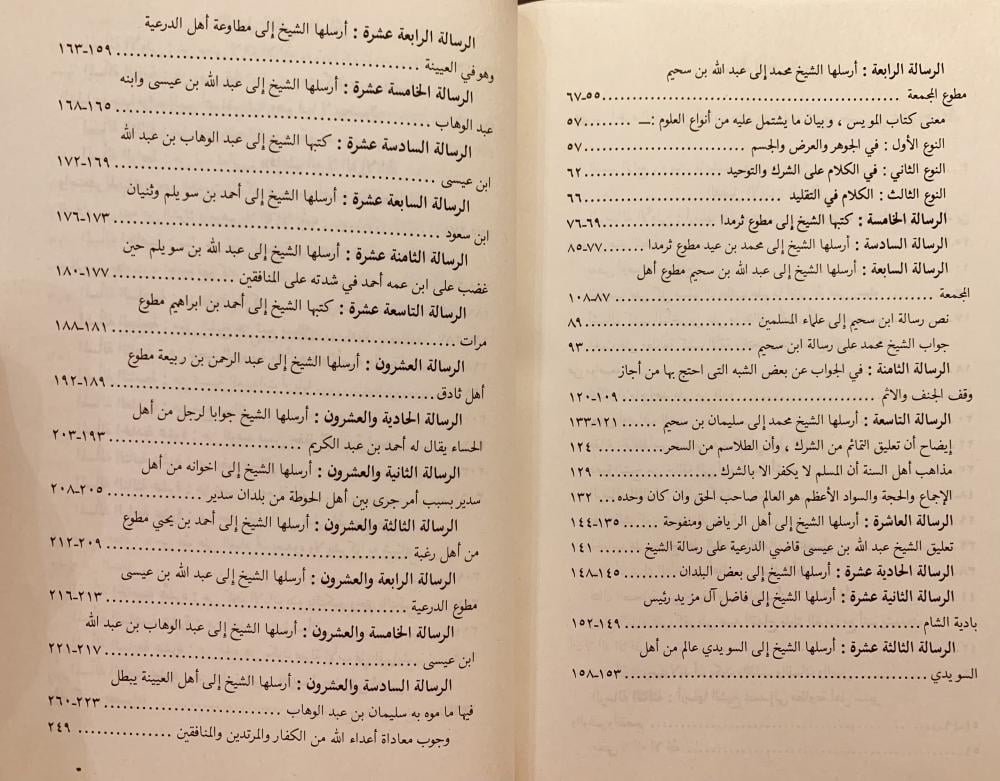 الرسالة الرابعة : أرسلها الشيخ محمد إلى عبد الله بن سحيم
مطوع المجمعة ........................................ ٥٥ـ٦٧
معنى كتاب المويس ، وبيان ما يشتمل عليه من أنواع العلوم :ــ ........ ٥٧
النوع الأول : في الجوهر والعرض والجسم ........................ ٥٧
النوع الثاني : في الكلام على الشرك والتوحيد ........................ ٦٢
النوع الثالث : الكلام في التقليد ........................ ٦٦
الرسالة الخامسة : كتبها الشيخ إلى مطوع ثرمدا ................ ٦٩ـ٧٦
الرسالة السادسة : أرسلها الشيخ إلى محمد بن عيد مطوع ثرمدا ....... ٧٧ـ٨٥
الرسالة السابعة : أرسلها الشيخ إلى عبد الله بن سحيم مطوع أهل
المجمعة ........................................ ٨٧ـ١٠٨
نص رسالة ابن سحيم إلى علماء المسلمين ........................ ٨٩
جواب الشيخ محمد على رسالة ابن سحيم ........................ ٩٣
الرسالة الثامنة : في الجواب عن بعض الشبه التى احتج بها من أجاز
وقف الجنف والاثم ........................................ ١٠٩ـ١٢٠
الرسالة التاسعة : أرسلها الشيخ محمد إلى سليمان بن سحيم ...... ١٢١ـ١٣٣
إيضاح أن تعليق التمائم من الشرك ، وأن الطلاسم من السحر............ ١٢٤
مذاهب أهل السنة أن المسلم لا يكفر الا بالشرك .................... ١٢٩
الإجماع والحجة والسواد الأعظم هو العالم صاحب الحق وان كان وحده... ١٣٢
الرسالة العاشرة : أرسلها الشيخ إلى أهل الرياض ومنفوحة ...... ١٣٥ـ١٤٤
تعليق الشيخ عبد الله بن عيسى قاضي الدرعية على رسالة الشيخ ....... ١٤١
الرسالة الحادية عشرة : أرسلها الشيخ إلى بعض البلدان .......... ١٤٥ـ١٤٨
الرسالة الثانية عشرة : أرسلها الشيخ إلى فاضل آل مزيد رئيس
بادية الشام ........................................ ١٤٩ـ١٥٢
الرسالة الثالثة عشرة : أرسلها الشيخ إلى السويدي عالم من أهل
السويدي ........................................ ١٥٣ـ١٥٨
الرسالة الرابعة عشرة : أرسلها الشيخ إلى مطاوعة أهل الدرعية
وهو في العيينة ........................................ ١٥٩ـ١٦٣
الرسالة الخامسة عشرة : أرسلها الشيخ إلى عبد الله بن عيسى وابنه
عبد الوهاب ........................................ ١٦٥ـ١٦٨
الرسالة السادسة عشرة : كتبها الشيخ إلى عبد الوهاب بن عبد الله
ابن عيسى ........................................ ١٦٩ـ١٧٢
الرسالة السابعة عشرة : أرسلها الشيخ إلى أحمد بن سويلم وثنيان
ابن سعود ........................................ ١٧٣ـ١٧٦
الرسالة الثامنة عشرة : أرسلها الشيخ إلى عبد الله بن سويلم حين
غضب على ابن عمه أحمد في شدته على المنافقين ........... ١٧٧ـ١٨٠
الرسالة التاسعة عشرة : كتبها الشيخ إلى أحمد بن ابراهيم مطوع
مرات ........................................ ١٨١ـ١٨٨
الرسالة العشرون : أرسلها الشيخ إلى عبد الرحمن بن ربيعة مطوع
أهل ثادق........................................ ١٨٩ـ١٩٢
الرسالة الحادية والعشرون : أرسلها الشيخ جوابا لرجل من أهل
الحساء يقال له أحمد بن عبد الكريم ........................ ١٩٣ـ٢٠٣
الرسالة الثانية والعشرون : أرسلها الشيخ إلى اخوانه من أهل
سدير بسبب أمر جرى بين أهل الحوطة من بلدان سدير ............ ٢٠٥ـ٢٠٨
الرسالة الثالثة والعشرون : أرسلها الشيخ إلى أحمد بن يحي مطوع
من أهل رغبة ........................................ ٢٠٩ـ٢١٢
الرسالة الرابعة والعشرون : أرسلها الشيخ إلى عبد الله بن عيسى
مطوع الدرعية ........................................ ٢١٣ـ٢١٦
الرسالة الخامسة والعشرون : أرسلها الشيخ إلى عبد الوهاب بن عبد الله
ابن عيسى ........................................ ٢١٧ـ٢٢١
الرسالة السادسة والعشرون : أرسلها الشيخ إلى أهل العيينة يبطل
فيها ما موه به سليمان بن عبد الوهاب .................... ٢٢٣ـ٢٦٠
وجوب معاداة أعداء الله من الكفار والمرتدين والمنافقين ............ ٢٤٩